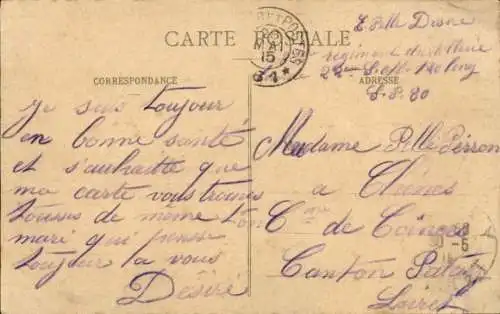 CARTE POSTALE
CORRESPONDANCE
ADRESSE
MAI
15
régiment d'artillerie
S.P. 80
je suis toujour
en bonne santé
et s'auhaitte que
ma carte vous trouves
tousses de meme ton
mari qui pensse
toujour a vous
Désiré
Madame Pelle Perron
a
Cne de Coinces
Canton Patay
Loiret